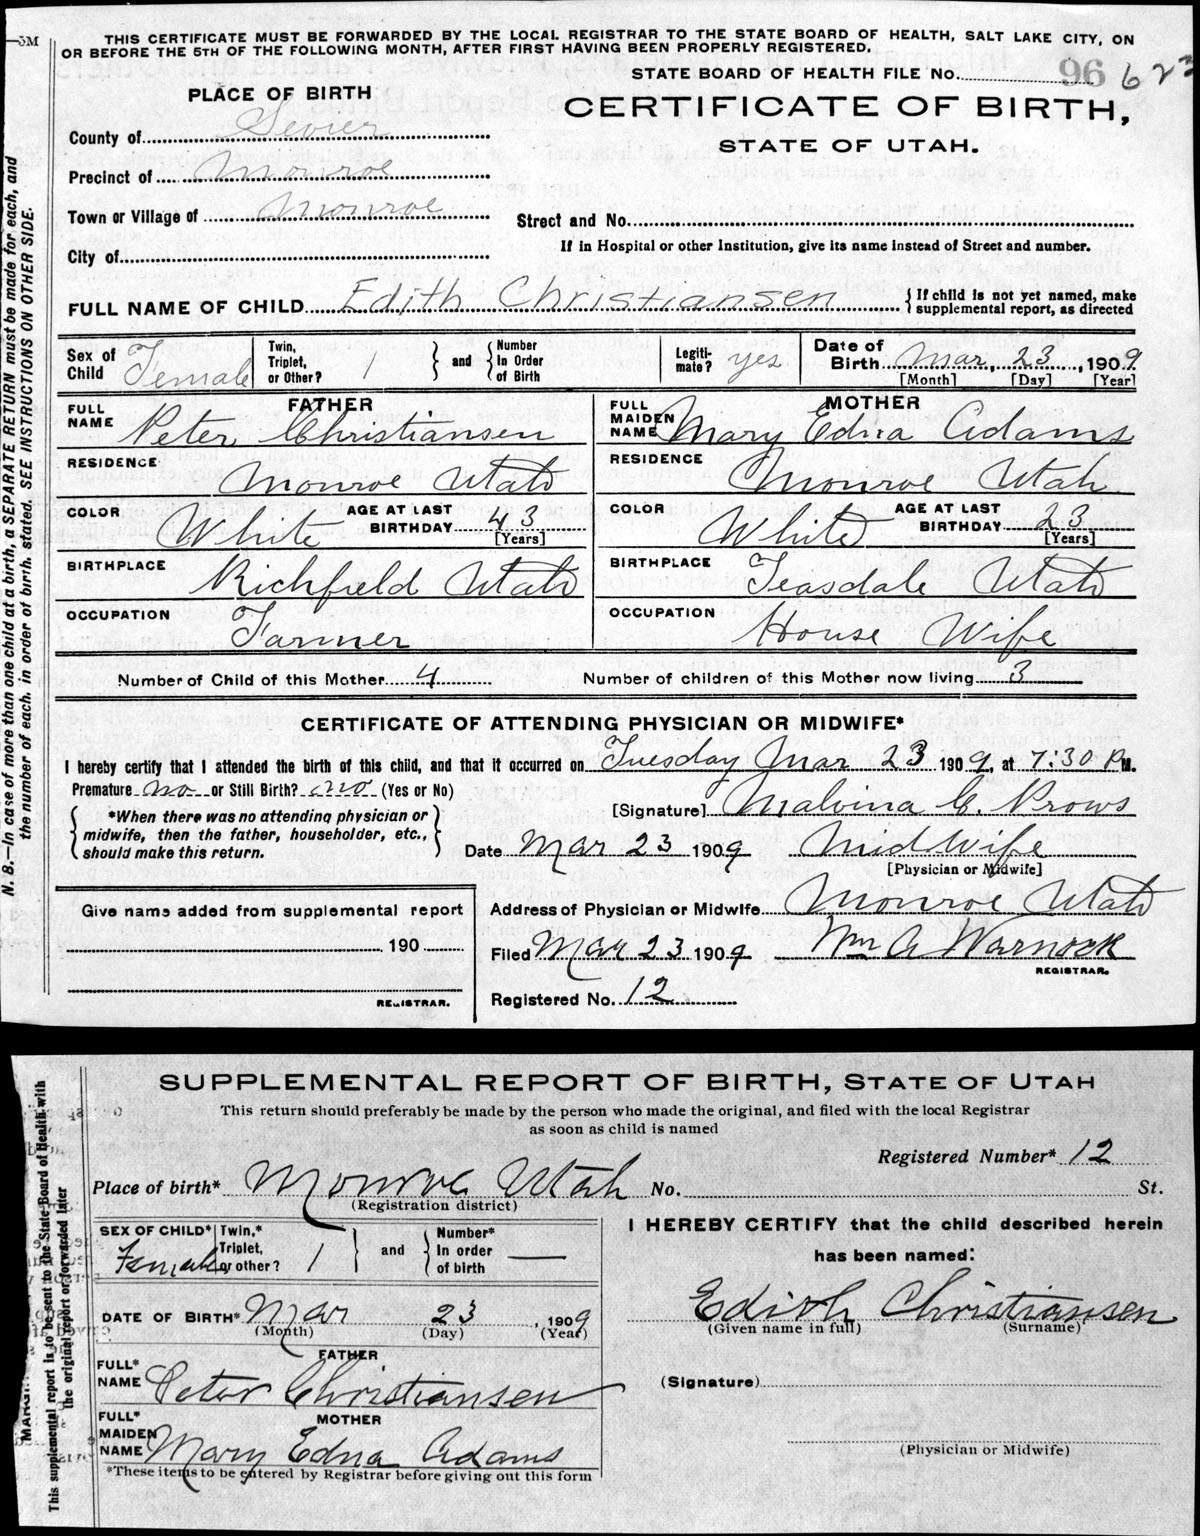 THIS CERTIFICATE MUST BE FORWARDED BY THE LOCAL REGISTRAR TO THE STATE BOARD OF HEALTH, SALT LAKE CITY, ON
OR BEFORE THE 5TH OF THE FOLLOWING MONTH, AFTER FIRST HAVING BEEN PROPERLY REGISTERED.
STATE BOARD OF HEALTH FILE No. 96 623
PLACE OF BIRTH
CERTIFICATE OF BIRTH,
STATE OF UTAH.
County of Sevier
Precinct of Monroe
Town or Village of Monroe
Street and No.
If in Hospital or other Institution, give its name instead of Street and number.
City of
FULL NAME OF CHILD Edith Christiansen
{If child is not yet named, make
supplemental report, as directed
Sex of Child Female
Twin, Triplet, or Other? 1
and
Number In Order of Birth
Legiti-mate? yes
Date of Birth Mar, 23, 1909
[Month] [Day] [Year]
FATHER
FULL NAME Peter Christiansen
RESIDENCE Monroe Utah
COLOR White AGE AT LAST BIRTHDAY 43 [Years]
BIRTHPLACE Richfield Utah
OCCUPATION Farmer
MOTHER
FULL MAIDEN NAME Mary Edna Adams
RESIDENCE Monroe Utah
COLOR White AGE AT LAST BIRTHDAY 23 [Years]
BIRTHPLACE Teasdale Utah
OCCUPATION House Wife
Number of Child of this Mother 4 Number of children of this Mother now living 3
CERTIFICATE OF ATTENDING PHYSICIAN OR MIDWIFE*
I hereby certify that I attended the birth of this child, and that it occurred on Tuesday Mar 23 1909, at 7:30 P M.
Premature no or Still Birth? no (Yes or No)
[Signature] Malvina E. Prows
*When there was no attending physician or
midwife, then the father, householder, etc.,
should make this return.
Date Mar 23 1909 Midwife
[Physician or Midwife]
Address of Physician or Midwife Monroe Utah
Filed Mar 23 1909 Wm A Warnock
REGISTRAR.
Registered No. 12
Give name added from supplemental report
190
REGISTRAR.
N. B.—In case of more than one child at a birth, a SEPARATE RETURN must be made for each, and
the number of each, in order of birth, stated. SEE INSTRUCTIONS ON OTHER SIDE.
SUPPLEMENTAL REPORT OF BIRTH, STATE OF UTAH
This return should preferably be made by the person who made the original, and filed with the local Registrar
as soon as child is named
Registered Number* 12
Place of birth* Monroe Utah No. St.
(Registration district)
SEX OF CHILD* Female
Twin,* Triplet, or other? 1
and
Number* In order of birth —
DATE OF BIRTH* Mar 23, 1909
(Month) (Day) (Year)
FATHER
FULL* NAME Peter Christiansen
MOTHER
FULL* MAIDEN NAME Mary Edna Adams
*These items to be entered by Registrar before giving out this form
I HEREBY CERTIFY that the child described herein
has been named:
Edith Christiansen
(Given name in full) (Surname)
(Signature)
(Physician or Midwife)
This supplemental report is to be sent to the State Board of Health with
the original report or forwarded later